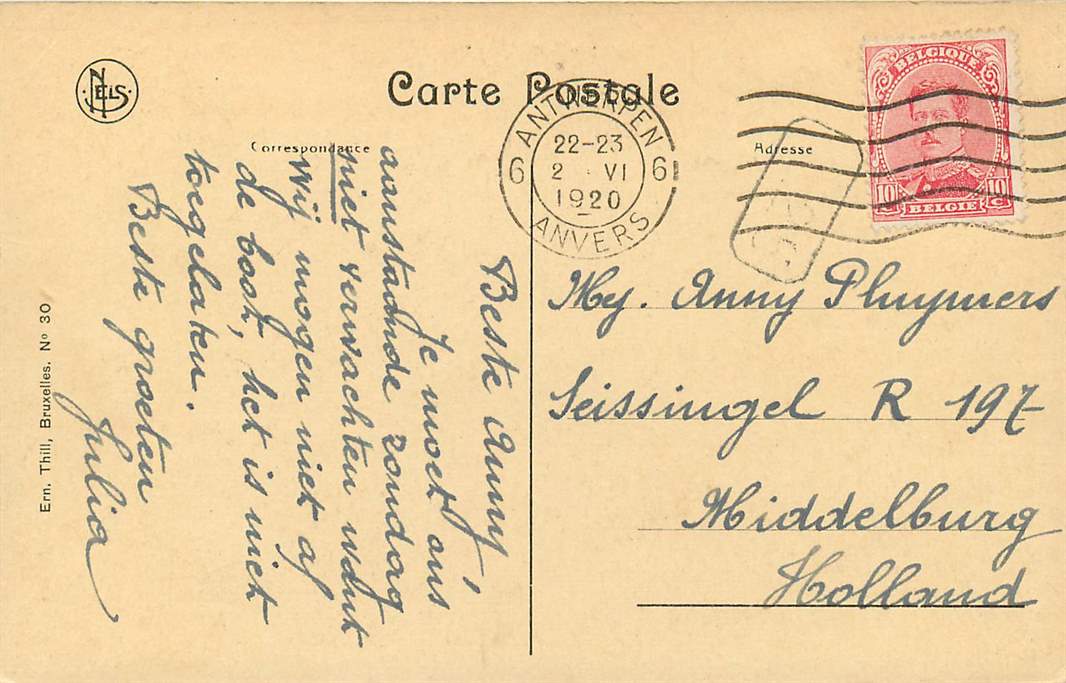 NELS
Carte Postale
Correspondance
Adresse
ANTWERPEN
6 22-23 6
2 · VI
1920
ANVERS
BELGIQUE
10 10 c
BELGIË
Beste Anny,
Je moet ons
aanstaande zondag
niet verwachten want
wij mogen niet af
de boot, het is niet
toegelaten.
Beste groeten
Julia
Mej. Anny Pluymers
Seissingel R 197
Middelburg
Holland
Ern. Thill, Bruxelles. No 30